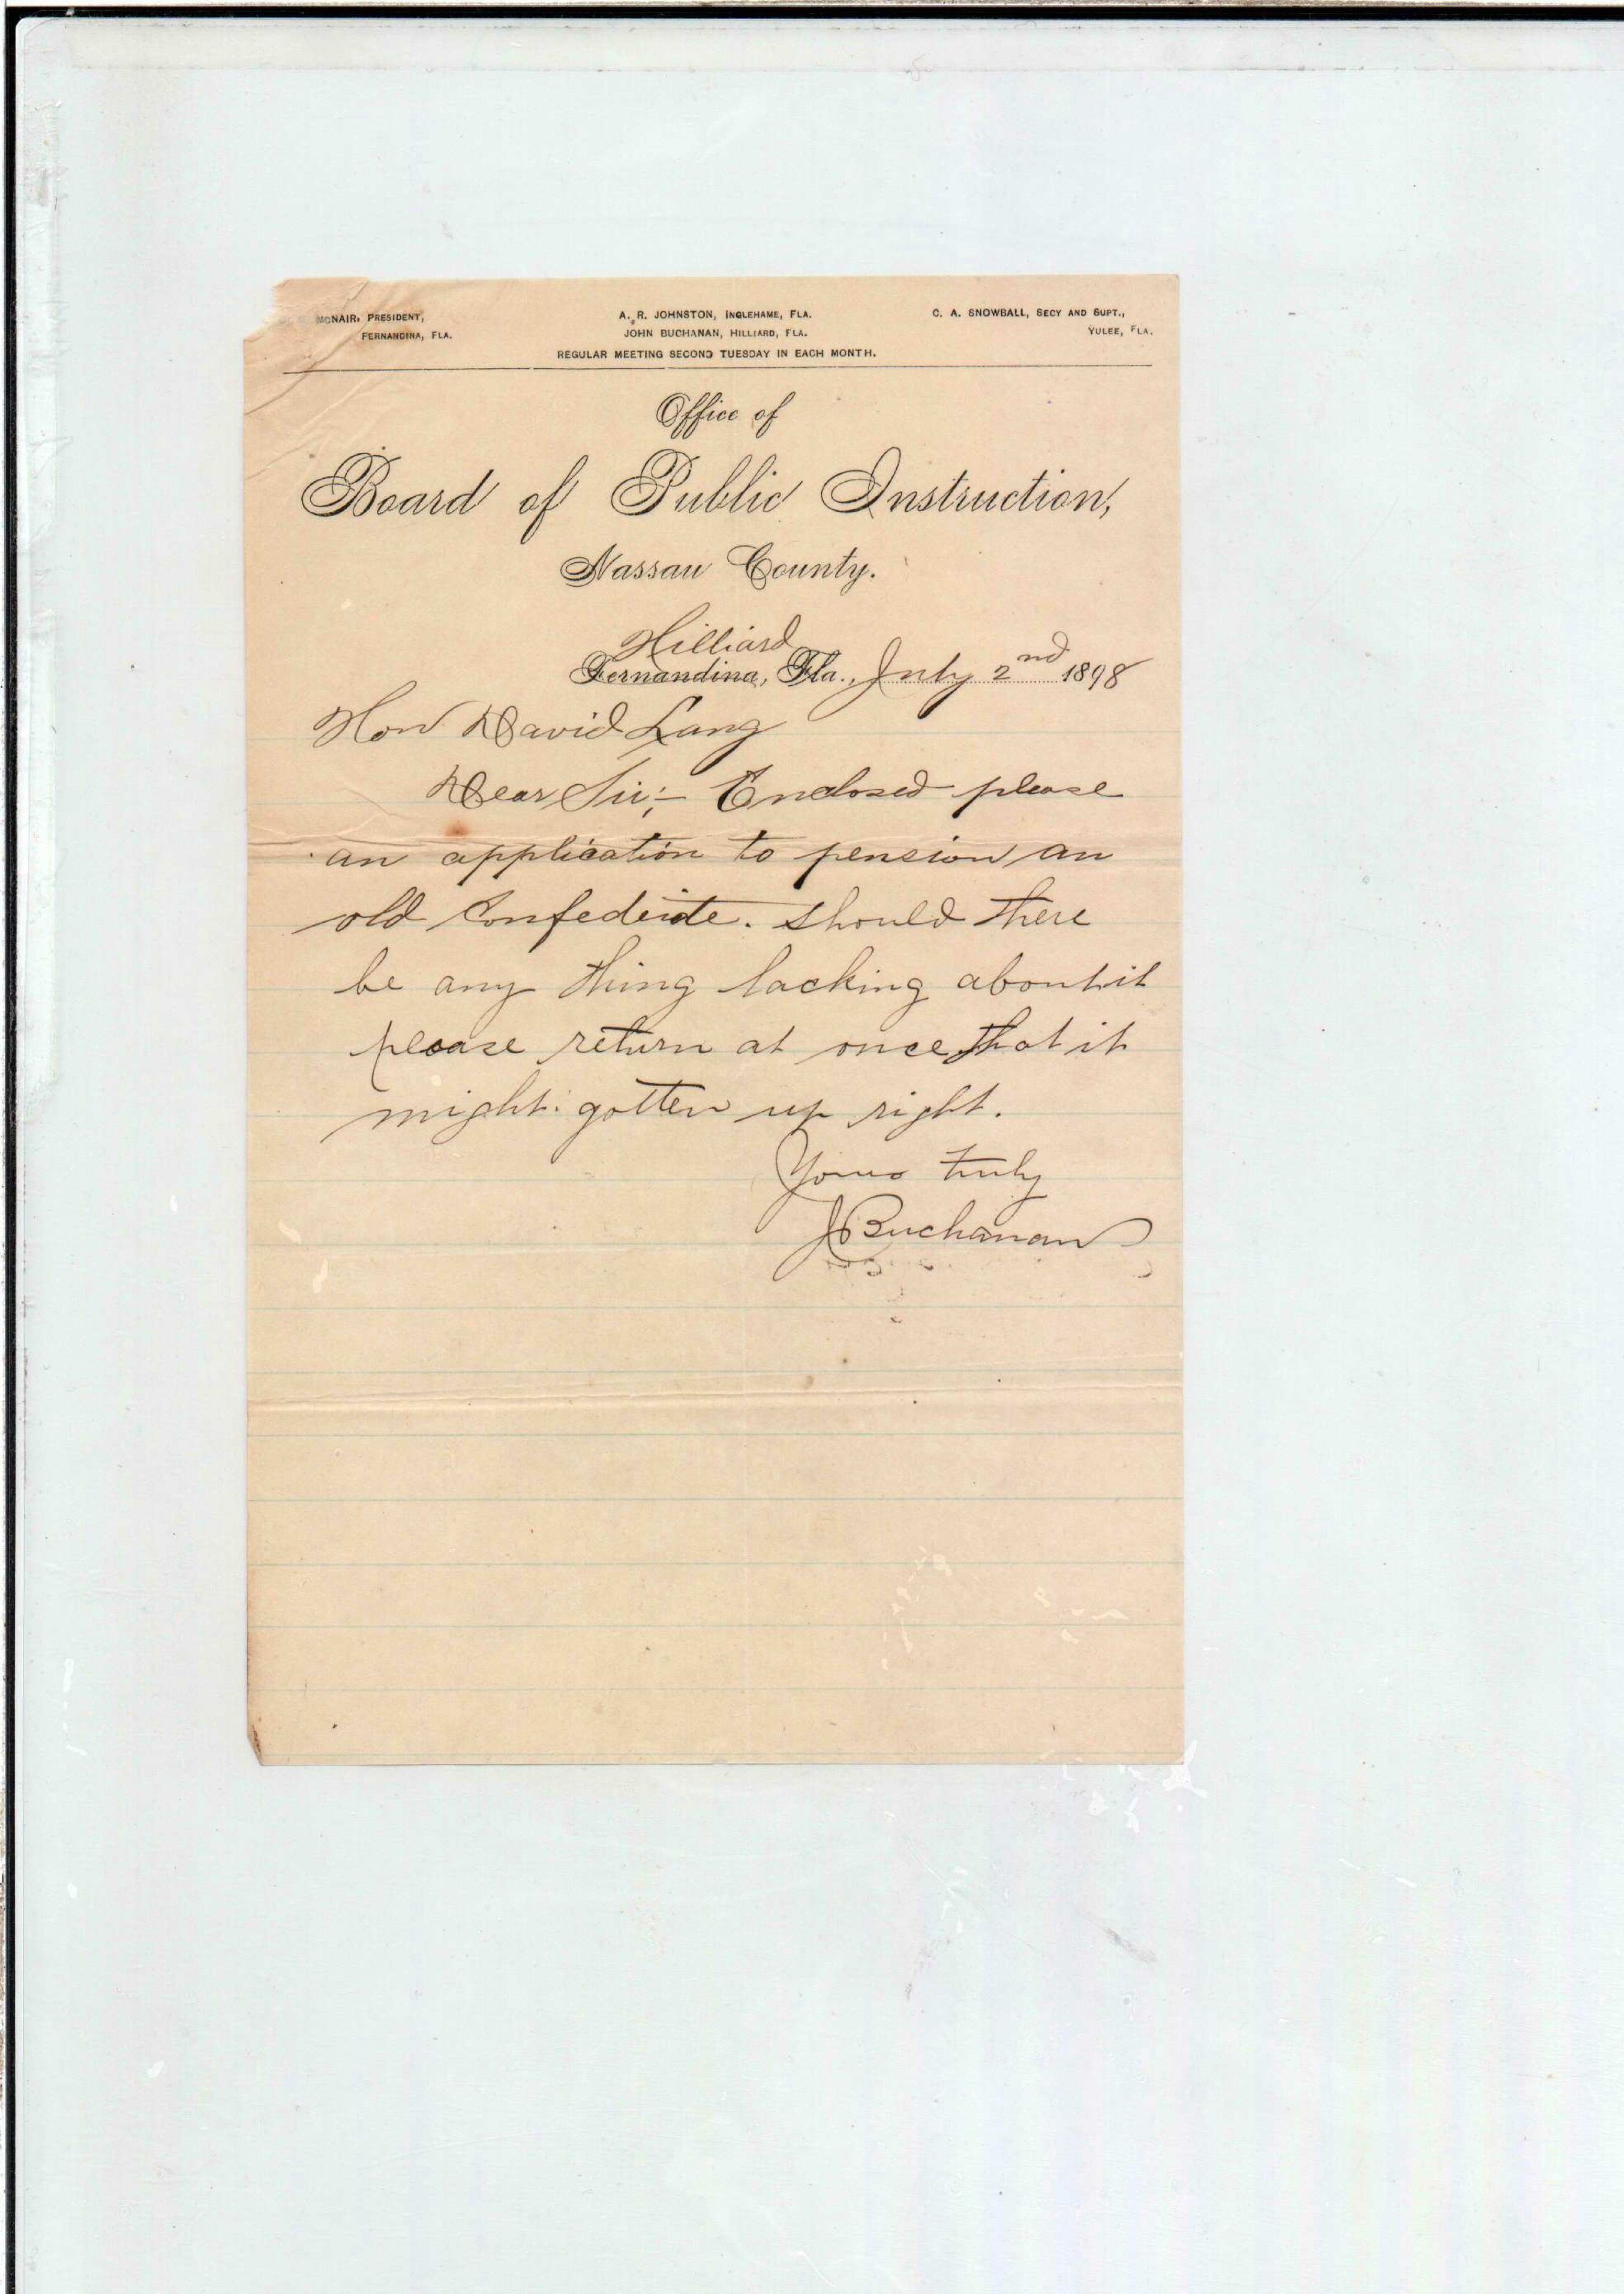 McNAIR, PRESIDENT,
FERNANDINA, FLA.
A. R. JOHNSTON, INGLEHAME, FLA.
JOHN BUCHANAN, HILLIARD, FLA.
REGULAR MEETING SECOND TUESDAY IN EACH MONTH.
C. A. SNOWBALL, SECY AND SUPT.,
YULEE, FLA.
Office of
Board of Public Instruction,
Nassau County.
Hilliard
Fernandina, Fla., July 2nd 1898
Hon David Lang
Dear Sir;- Enclosed please
an application to pension an
old Confederate. Should there
be any thing lacking about it
please return at once that it
might gotten up right.
Yours truly
J Buchanan